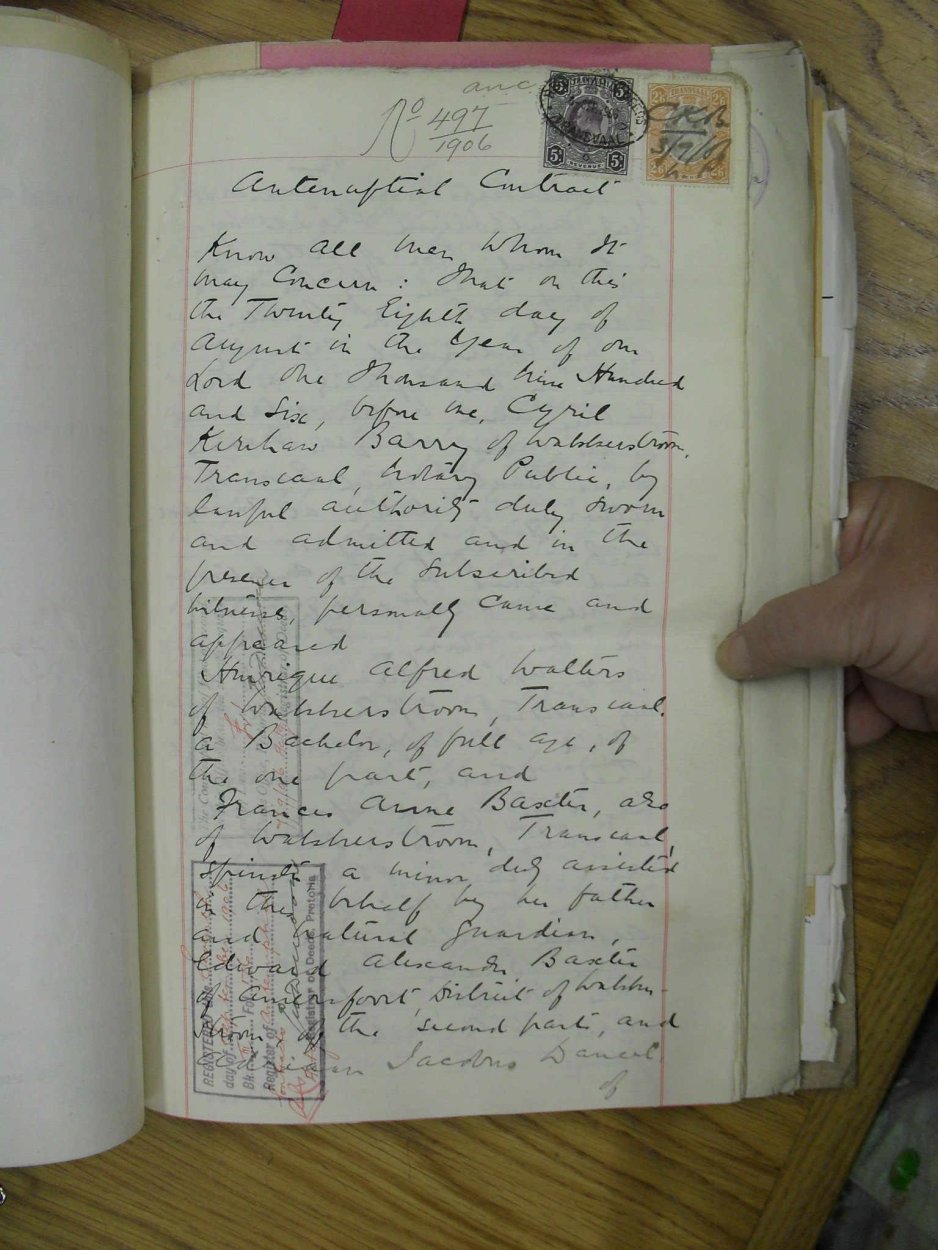 anc
No 497
1906
TRANSVAAL
5/- 5/-
REVENUE
TRANSVAAL
2/6 2/6
CKB
Antenuptial Contract
Know all men whom It
may Concern : That on this
the Twenty Eighth day of
August in the Year of our
Lord One Thousand Nine Hundred
and Six, before me, Cyril
Kershaw Barry of Wakkerstroom,
Transvaal, Notary Public, by
lawful authority duly sworn
and admitted and in the
presence of the Subscribed
witnesses, personally came and
appeared
Henrique Alfred Walters
of Wakkerstroom, Transvaal,
a Bachelor, of full age, of
the one part, and
Frances Anne Baxter, also
of Wakkerstroom, Transvaal,
Spinster a minor duly assisted
in this behalf by her father
and natural Guardian,
Edward Alexander Baxter
of Amersfoort, District of Wakker-
stroom of the second part, and
Jacobus Daneel
of
REGISTERED this
day of
Bk. Fol.
Register of
Registrar of Deeds, Pretoria